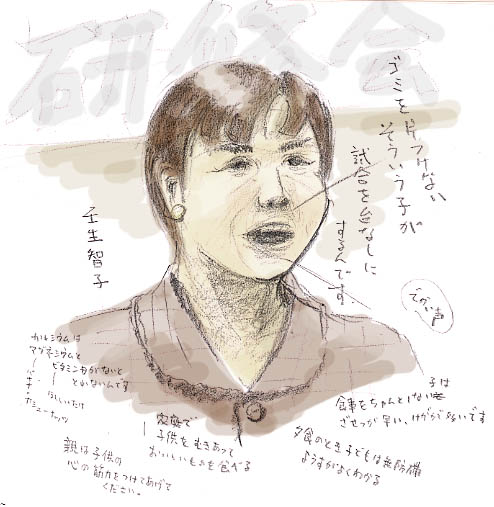 研修会
ゴミを片づけない
そういう子が
試合を台なしに
するんです
壬生智子
でかい声
カルシウムは
マグネシウムと
ビタミンカがないと
とれないんです
カシューナッツ
家族で
子供をむきあって
おいしいものを食べる
親は子供の
心の筋力をつけてあげて
ください。
子は
食事をちゃんととれない
ざせつが早い、けがが多いです
夕食のとき子どもは無防備
ようすがよくわかる